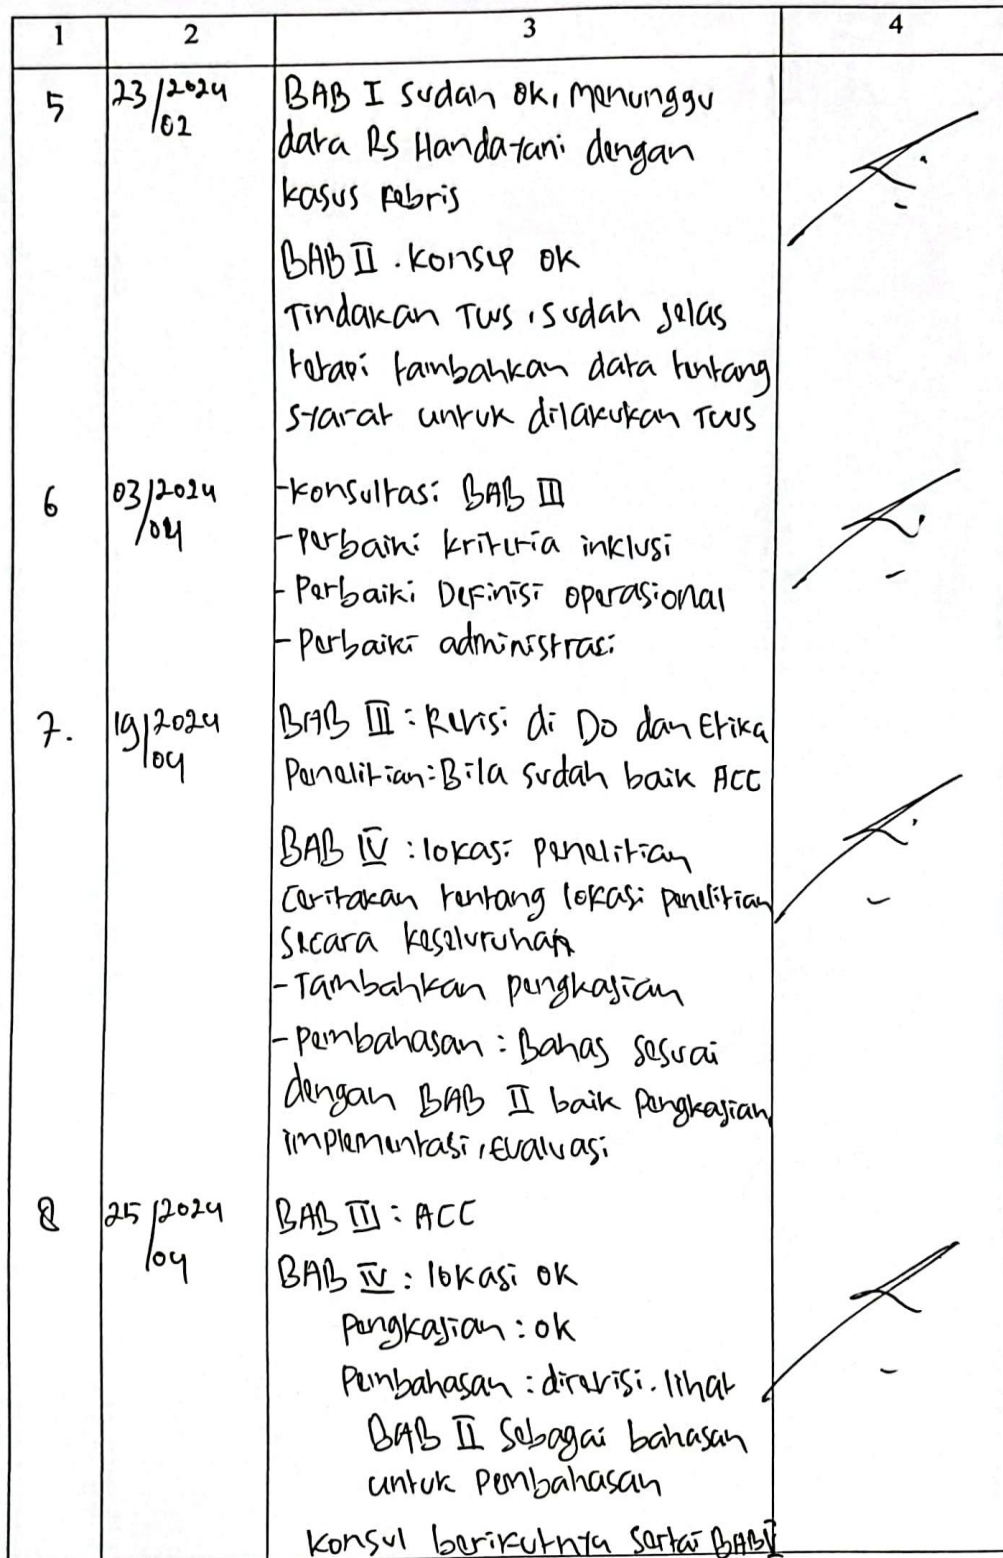 1 2 3 4
5 23/2024 BAB I sudah ok, menunggu
/02 data RS Handayani dengan
kasus febris
BAB II . konsep ok
Tindakan TWS, sudah jelas
tetapi tambahkan data tentang
syarat untuk dilakukan TWS
6 03/2024 -konsultasi BAB III
/04 -perbaiki kriteria inklusi
-Perbaiki Definisi operasional
-Perbaiki administrasi
7. 19/2024 BAB III : Revisi di Do dan Etika
/04 Penelitian : Bila sudah baik ACC
BAB IV : lokasi penelitian
Ceritakan tentang lokasi penelitian
secara keseluruhan
-Tambahkan pengkajian
-pembahasan : Bahas sesuai
dengan BAB II baik Pengkajian,
implementasi, evaluasi
8 25/2024 BAB III : ACC
/04 BAB IV : lokasi ok
Pengkajian : ok
Pembahasan : direvisi. lihat
BAB II Sebagai bahasan
untuk Pembahasan
konsul berikutnya sertai BAB V